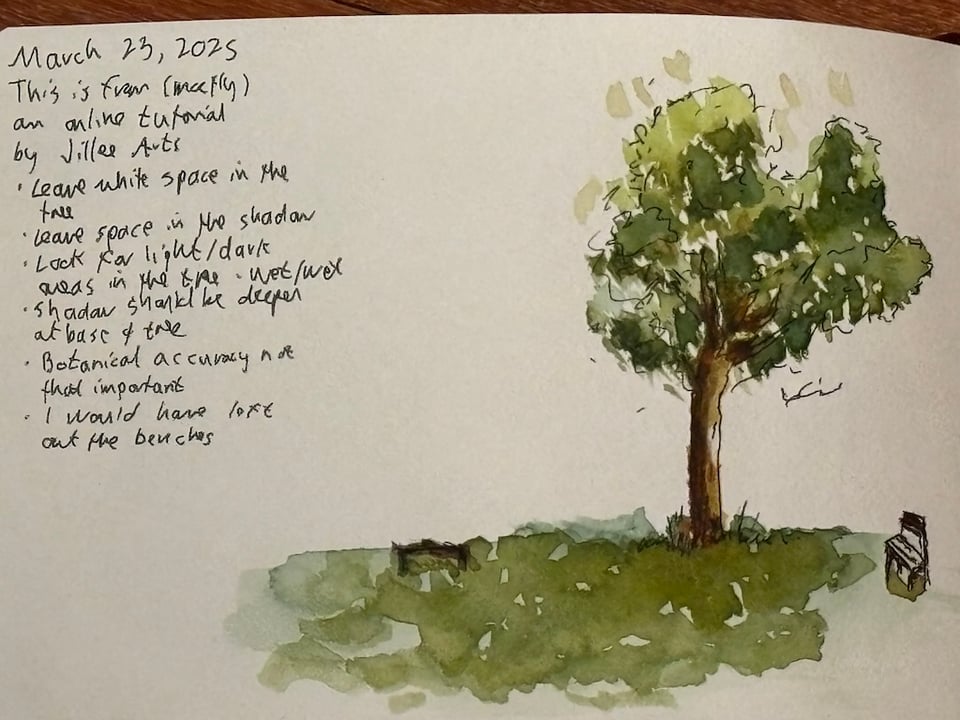 March 23, 2025
This is from (mostly)
an online tutorial
by Jillee Arts
· Leave white space in the
tree
· Leave space in the shadow
· Look for light/dark
areas in the tree · wet/wet
· Shadow should be deeper
at base of tree
· Botanical accuracy not
that important
· I would have left
out the benches